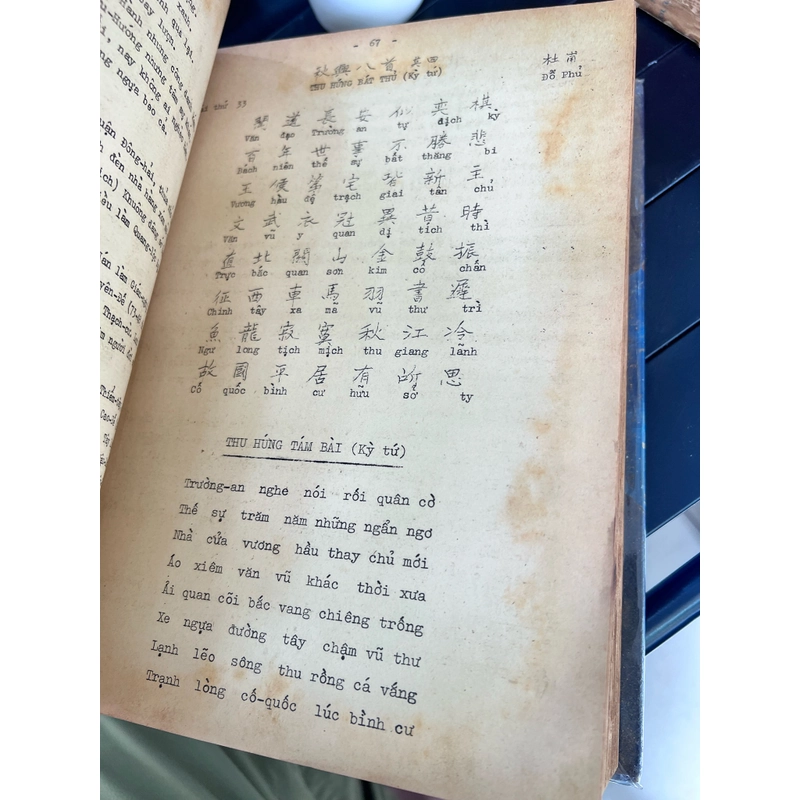 qua lại.
lượn.
nhưng công danh
nhưng tâm sự
nay không ai
ngựa béo cả.
Đông-hải,
đen nhà hàng
Khuông
lâm
lâm
người
- 67 -
秋興八首 其四
杜甫
THU HỨNG BÁT THỦ (Kỳ tứ)
Đỗ Phủ
thứ 33
聞道長安似奕棋
Văn đạo Trường an tự dịch kỳ
百年世事不勝悲
Bách niên thế sự bất thăng bi
王侯第宅皆新主
Vương hầu đệ trạch giai tân chủ
文武衣冠異昔時
Văn vũ y quan dị tích thì
直北關山金鼓振
Trực bắc quan sơn kim cổ chấn
征西車馬羽書遲
Chinh tây xa mã vũ thư trì
魚龍寂寞秋江冷
Ngư long tịch mịch thu giang lãnh
故國平居有所思
Cố quốc bình cư hữu sở ty
THU HỨNG TÁM BÀI (Kỳ tứ)
Trường-an nghe nói rối quân cờ
Thế sự trăm năm những ngẩn ngơ
Nhà cửa vương hầu thay chủ mới
Áo xiêm văn vũ khác thời xưa
Ải quan cõi bắc vang chiêng trống
Xe ngựa đường tây chậm vũ thư
Lạnh lẽo sông thu rồng cá vắng
Trạnh lòng cố-quốc lúc bình cư